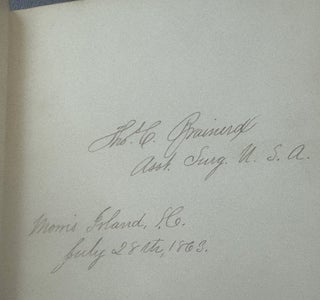 Tho. C. Brainerd
Asst. Surg. U. S. A.
Morris Island, S.C.
July 28th, 1863.